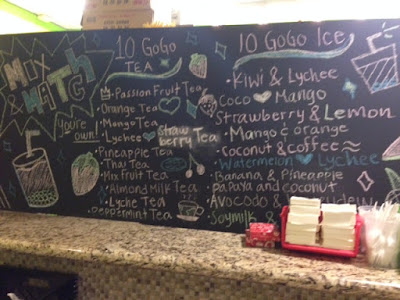 MIX
& MATCH
you're own!
10 GoGo
TEA
Passion Fruit Tea
Orange Tea
Mango Tea
Lychee
Strawberry Tea
Pineapple Tea
Thai Tea
Mix Fruit Tea
Almond Milk Tea
Lyche Tea
Peppermint Tea
10 GoGo Ice
Kiwi & Lychee
Coco Mango
Strawberry & Lemon
Mango & orange
Coconut & coffee
Watermelon Lychee
Banana & Pineapple
Papaya and coconut
Avocodo &
Soymilk &